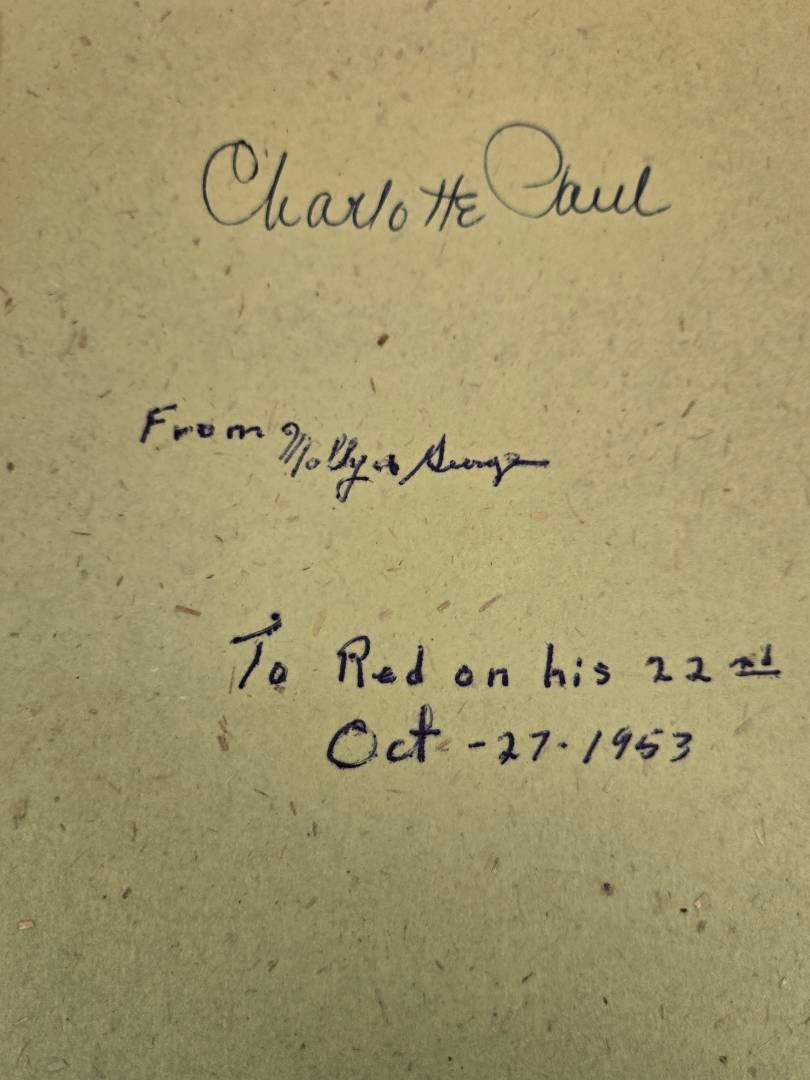 Charlotte Paul
From Molly & George
To Red on his 22nd
Oct - 27 · 1953